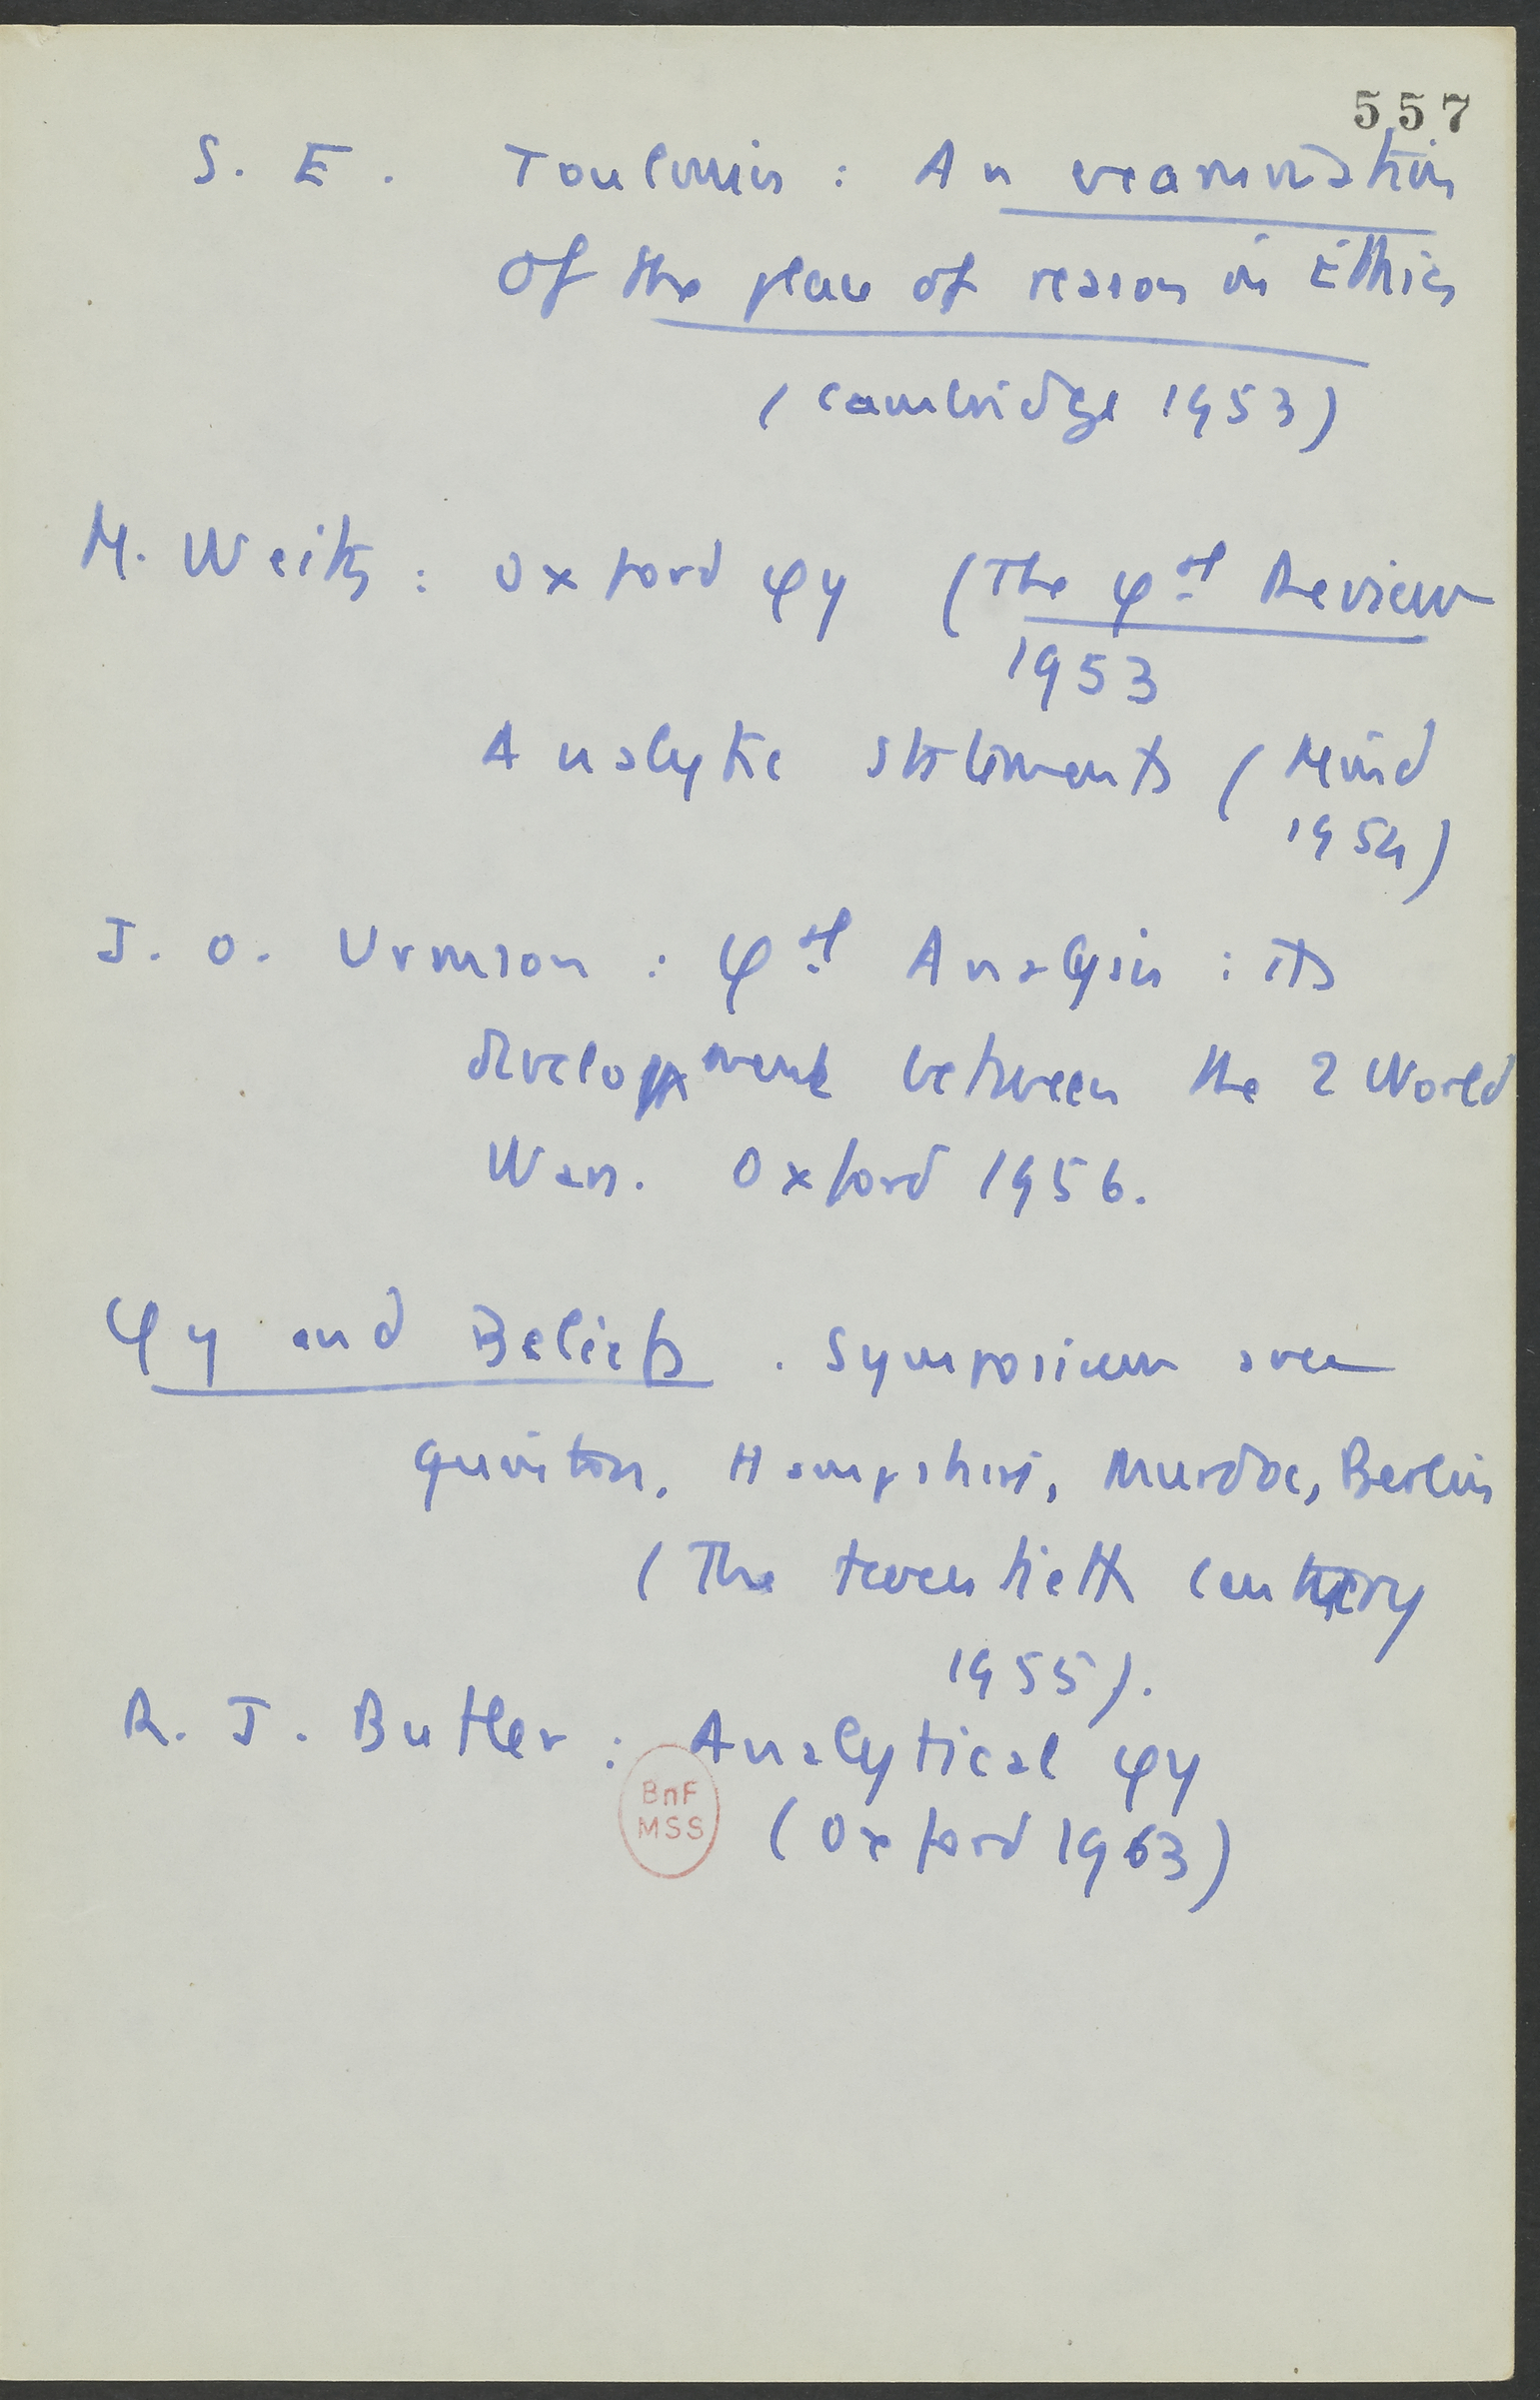 557
S. E. Toulmin : An examination
of the place of reason in Ethics
(Cambridge 1953)
M. Weitz : Oxford φy (The φal Review
1953
Analytic statements (Mind
1954)
J. O. Urmson : φal Analysis : its
development between the 2 World
Wars. Oxford 1956.
φy and Beliefs. Symposium avec
Quinton, Hampshire, Murdoc, Berlin
(The twentieth century
1955).
R. J. Butler : Analytical φy
(Oxford 1963)
BnF
MSS